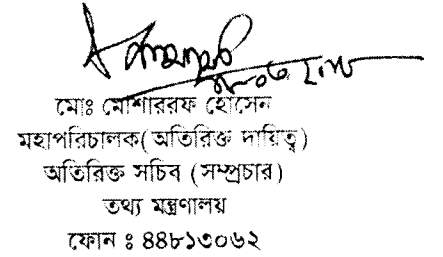 মোঃ মোশাররফ হোসেন
মহাপরিচালক(অতিরিক্ত দায়িত্ব)
অতিরিক্ত সচিব (সম্প্রচার)
তথ্য মন্ত্রণালয়
ফোন ঃ ৪৪৮১৩০৬২